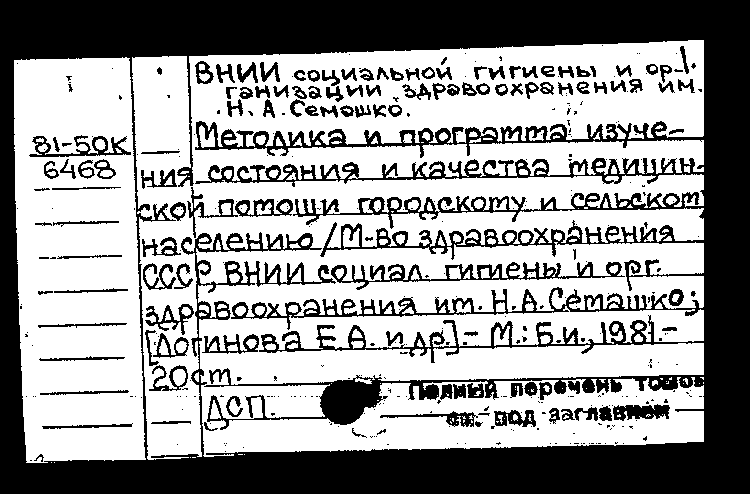 ВНИИ социальной гигиены и ор-
ганизации здравоохранения им.
Н. А. Семашко.
81-50К
6468
Методика и программа изуче-
ния состояния и качества медицин-
ской помощи городскому и сельскому
населению / М-во здравоохранения
СССР, ВНИИ социал. гигиены и орг.
здравоохранения им. Н. А. Семашко;
[Логинова Е.А. и др.].- М.: Б.и., 1981.-
20 ст.
ДСП.
Полный перечень томов
см. под заглавием